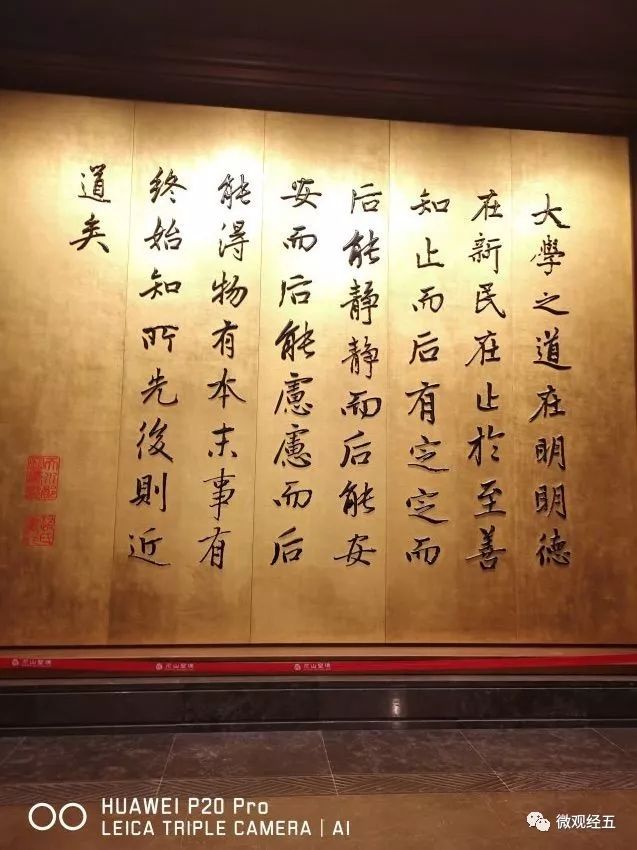 大學之道在明明德
在新民在止於至善
知止而后有定定而
后能静静而后能安
安而后能慮慮而后
能得物有本末事有
終始知所先後則近
道矣
尼山聖境
尼山聖境
尼山聖境
HUAWEI P20 Pro
LEICA TRIPLE CAMERA | AI
微观经五